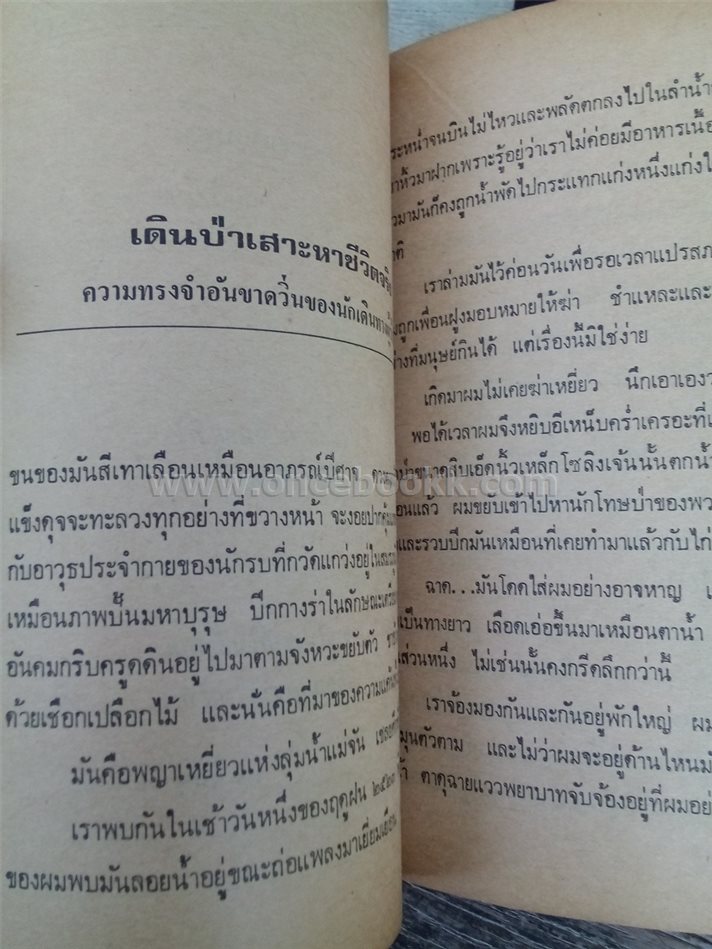 เดินป่าเสาะหาชีวิตจริง
ความทรงจำอันขาดวิ่นของนักเดินทาง
ขนของมันสีเทาเลือนเหมือนอาภรณ์ปีศาจ
แข็งดุจจะทะลวงทุกอย่างที่ขวางหน้า จะงอยปาก
กับอาวุธประจำกายของนักรบที่กวัดแกว่งอยู่ใน
เหมือนภาพปั้นมหาบุรุษ ปีกกางร่าในลักษณะ
อันคมกริบครูดดินอยู่ไปมาตามจังหวะขยับตัว
ด้วยเชือกเปลือกไม้ และนั่นคือที่มาของความ
มันคือพญาเหยี่ยวแห่งลุ่มน้ำแม่จัน
เราพบกันในเช้าวันหนึ่งของฤดูฝน ๒๕๒๓
ของผมพบมันลอยน้ำอยู่ขณะถ่อแพลงมาเยี่ยมเยียน
www.oncebookk.com
ระหน่ำจนบินไม่ไหวและพลัดตกลงไปในลำน้ำ
าหิ้วมาฝากเพราะรู้อยู่ว่าเราไม่ค่อยมีอาหารเนื้อ
วมามันก็คงถูกน้ำพัดไปกระแทกแก่งหนึ่งแก่งใ
าติ
เราล่ามมันไว้ค่อนวันเพื่อรอเวลาแปรสภ
งถูกเพื่อนฝูงมอบหมายให้ฆ่า ชำแหละและ
ย่างที่มนุษย์กินได้ แต่เรื่องนี้มิใช่ง่าย
เกิดมาผมไม่เคยฆ่าเหยี่ยว นึกเอาเองว
พอได้เวลาผมจึงหยิบอีเหน็บคร่ำเครอะที่เ
ขนาดสิบเอ็ดนิ้วเหล็กโซลิงเจ้นนั้นตกน้ำ
อนแล้ว ผมขยับเข้าไปหานักโทษป่าของพว
งและรวบปีกมันเหมือนที่เคยทำมาแล้วกับไก่
ฉาด...มันโดดใส่ผมอย่างอาจหาญ
เป็นทางยาว เลือดเอ่อขึ้นมาเหมือนตาน้ำ
ส่วนหนึ่ง ไม่เช่นนั้นคงกรีดลึกกว่านี้
เราจ้องมองกันและกันอยู่พักใหญ่ ผม
มุนตัวตาม และไม่ว่าผมจะอยู่ด้านไหนมั
ตาดุฉายแววพยาบาทจับจ้องอยู่ที่ผมอย่